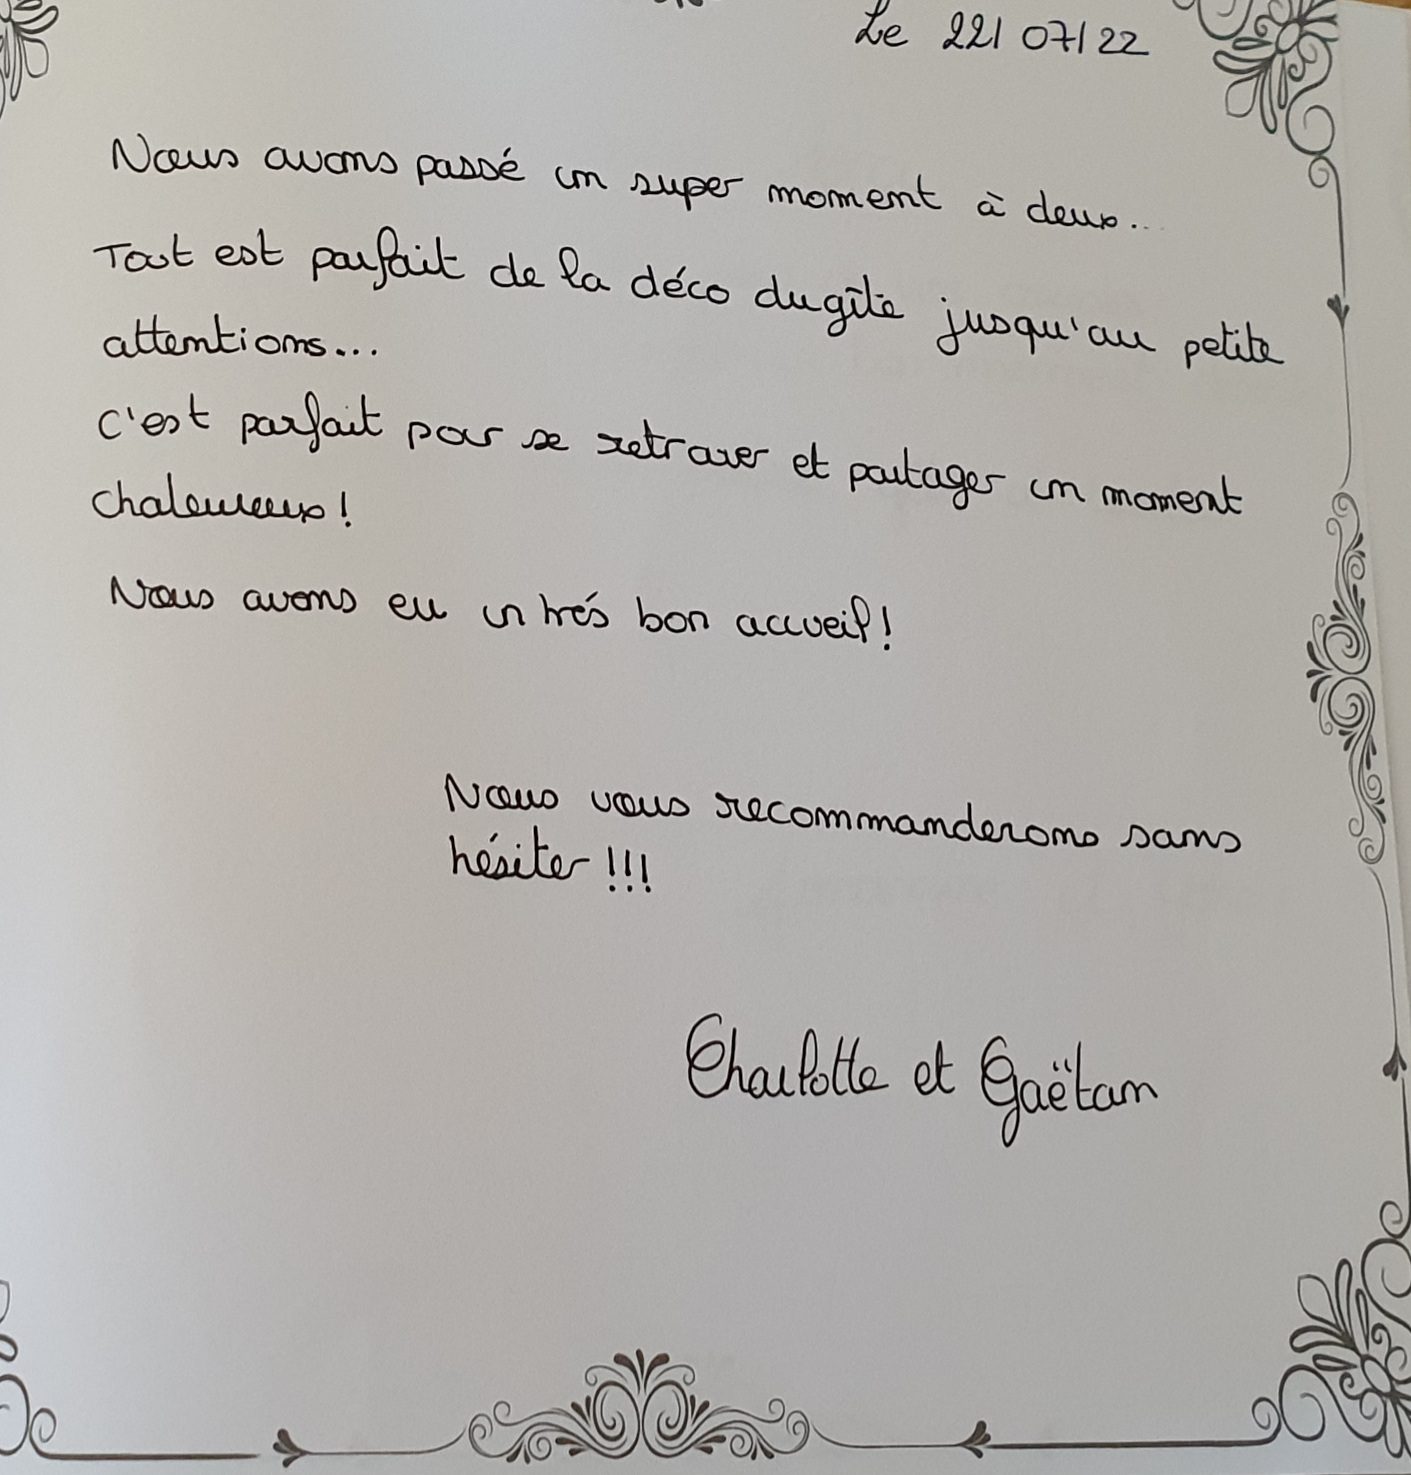 Le 22/07/22
Nous avons passé un super moment à deux...
Tout est parfait de la déco du gîte jusqu'au petite
attentions...
C'est parfait pour se retrouver et partager un moment
chaleureux !
Nous avons eu un trés bon accueil !
Nous vous recommanderons sans
hésiter !!!
Charlotte et Gaëtan